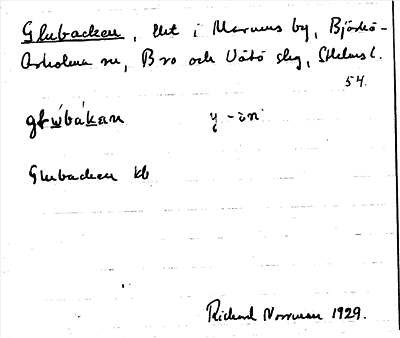 Glubacken, lht i Marums by, Björkö-
Arholma sn, Bro och Vätö skg, Sthlms l.
54.
glẃbákan y -än
Glubacken kb
Rickard Norrman 1929.